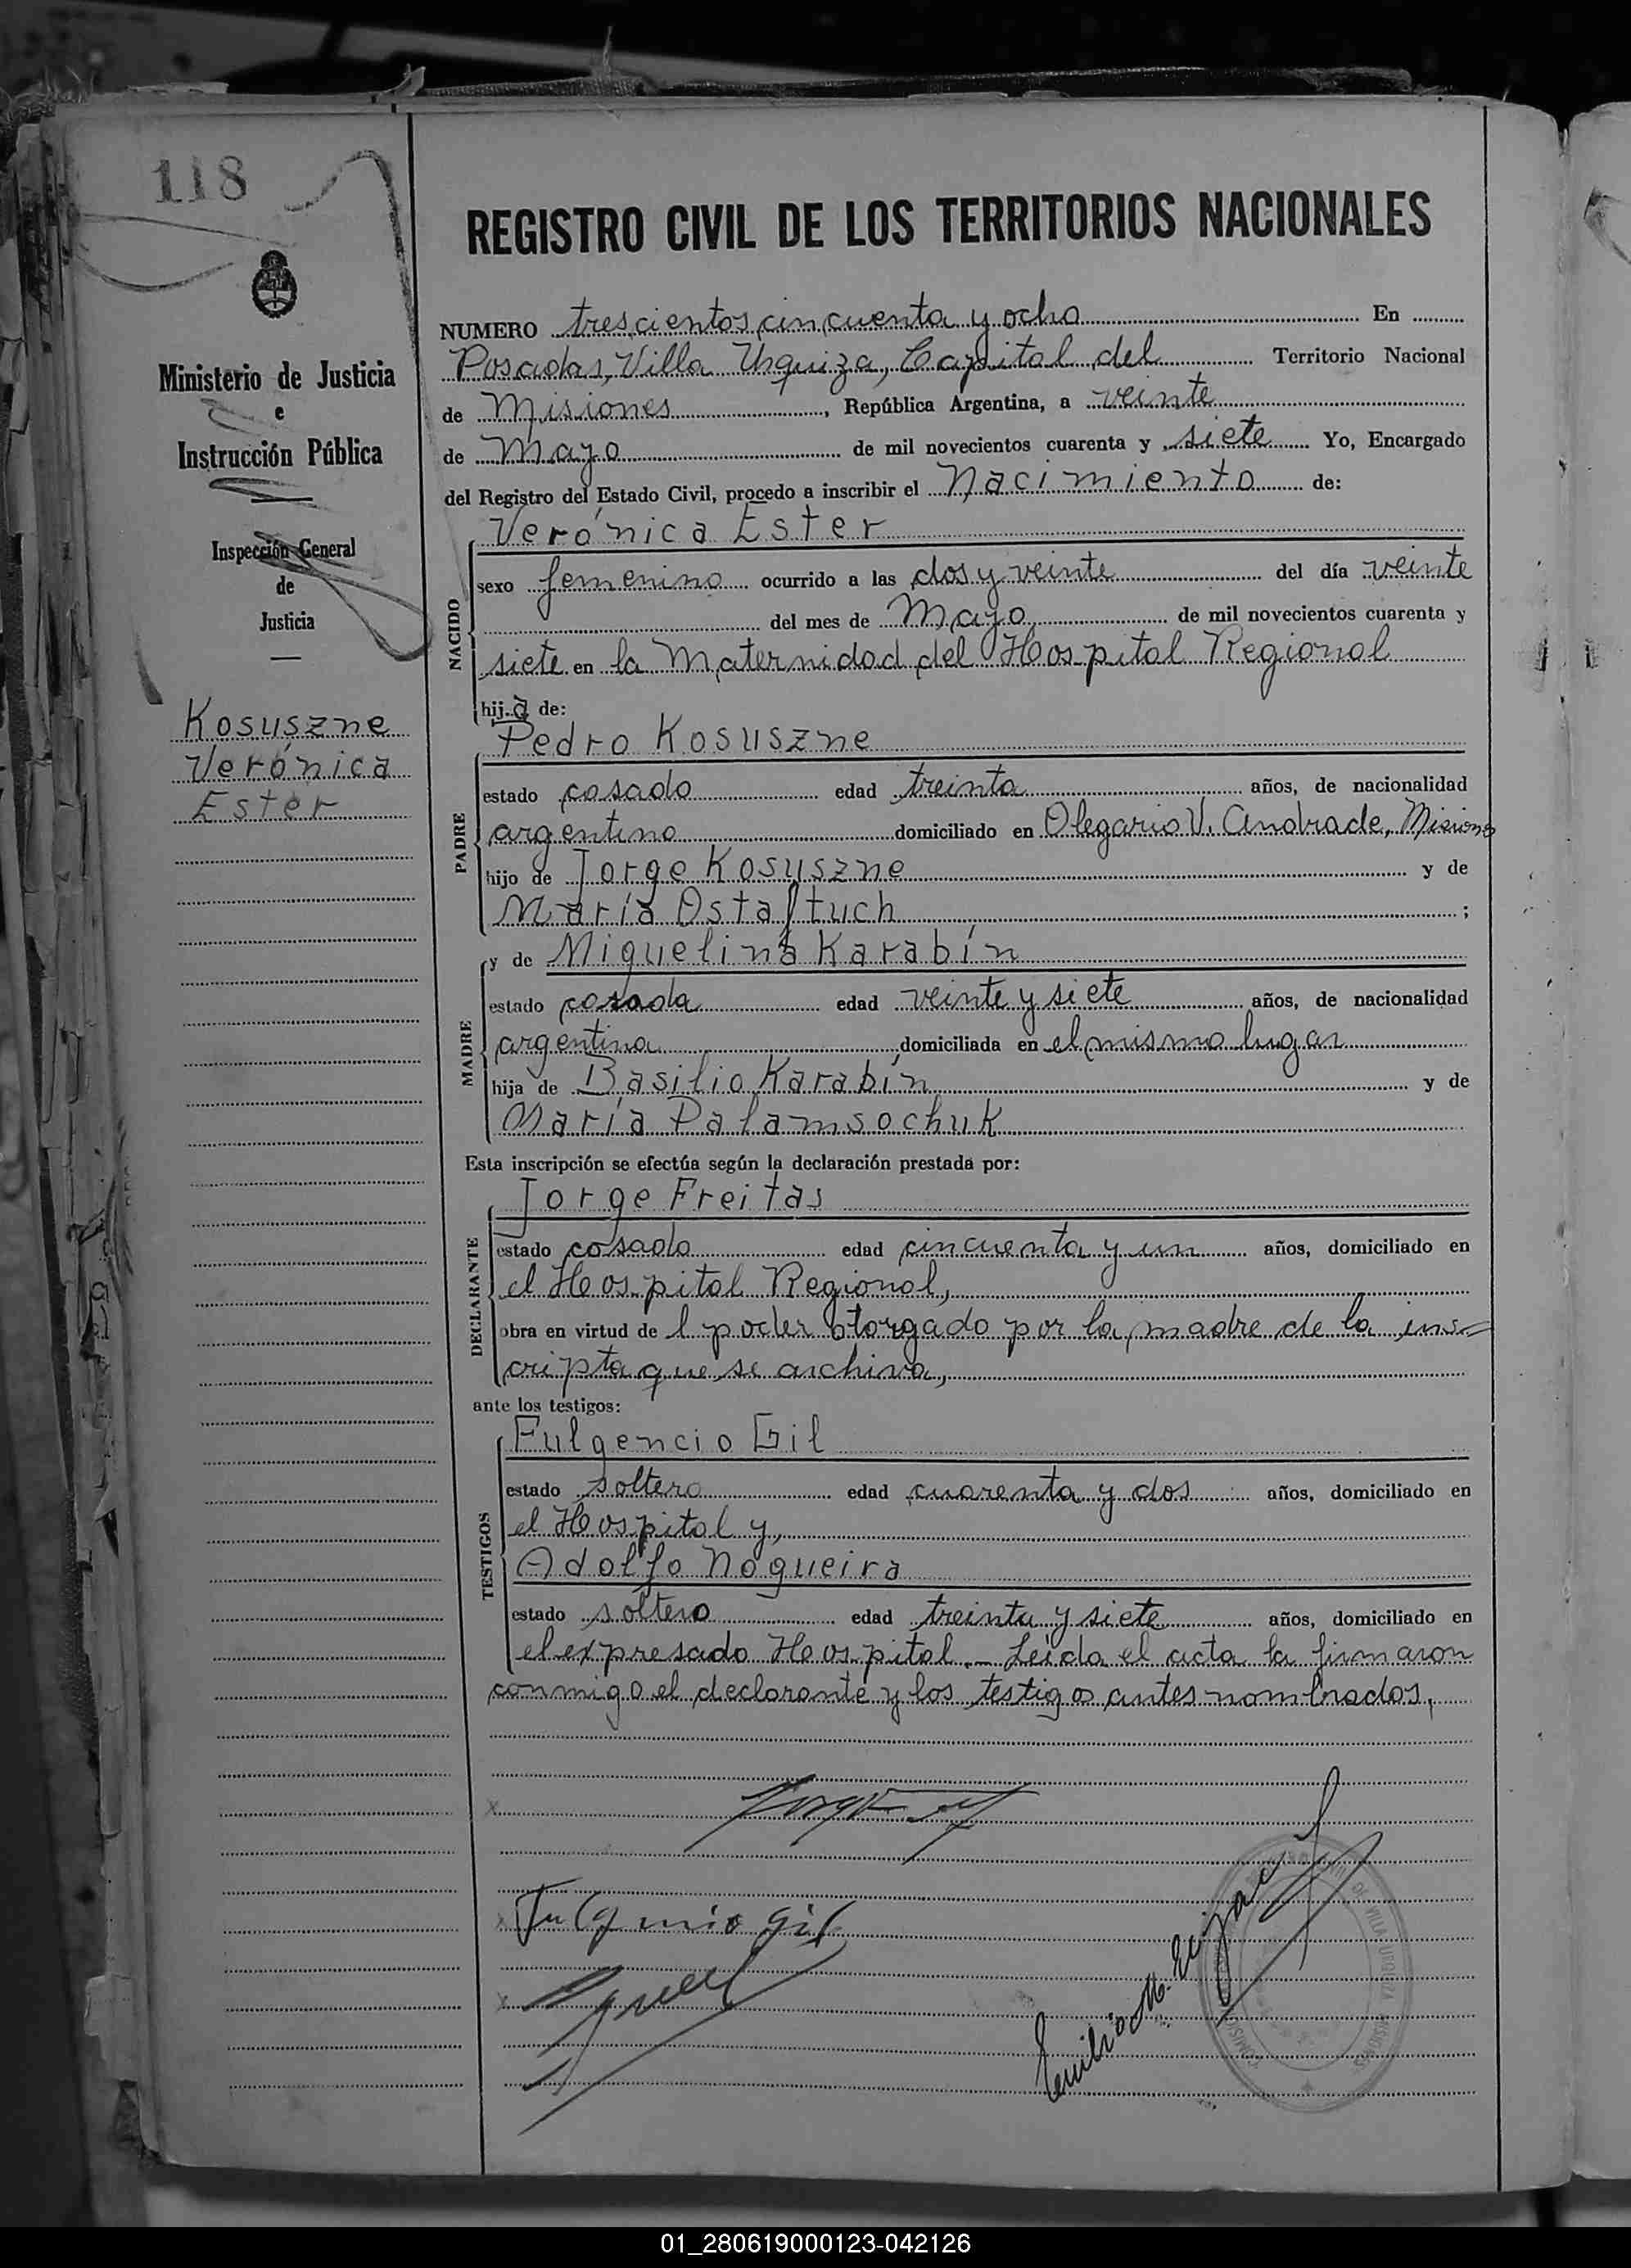 118
Ministerio de Justicia
e
Instrucción Pública
Inspección General
de
Justicia
Kosuszne
Verónica
Ester
REGISTRO CIVIL DE LOS TERRITORIOS NACIONALES
NUMERO trescientos cincuenta y ocho En
Posadas, Villa Urquiza, Capital del Territorio Nacional
de Misiones, República Argentina, a veinte
de Mayo de mil novecientos cuarenta y siete Yo, Encargado
del Registro del Estado Civil, procedo a inscribir el Nacimiento de:
NACIDO
Verónica Ester
sexo femenino ocurrido a las dos y veinte del día veinte
del mes de Mayo de mil novecientos cuarenta y
siete en la Maternidad del Hospital Regional
hija de:
PADRE
Pedro Kosuszne
estado casado edad treinta años, de nacionalidad
argentino domiciliado en Olegario V. Andrade, Misiones
hijo de Jorge Kosuszne y de
María Ostaftuch ;
MADRE
y de Miguelina Karabín
estado casada edad veinte y siete años, de nacionalidad
argentina domiciliada en el mismo lugar
hija de Basilio Karabín y de
María Palamsochuk
Esta inscripción se efectúa según la declaración prestada por:
DECLARANTE
Jorge Freitas
estado casado edad cincuenta y un años, domiciliado en
el Hospital Regional,
obra en virtud de l poder otorgado por la madre de la ins=
cripta que se archiva,
ante los testigos:
TESTIGOS
Fulgencio Gil
estado soltero edad cuarenta y dos años, domiciliado en
el Hospital y,
Adolfo Nogueira
estado soltero edad treinta y siete años, domiciliado en
el expresado Hospital.- Leída el acta la firmaron
conmigo el declarante y los testigos antes nombrados,
Fulgencio Gil
Emilio M.
VILLA URQUIZA MISIONES
01_280619000123-042126